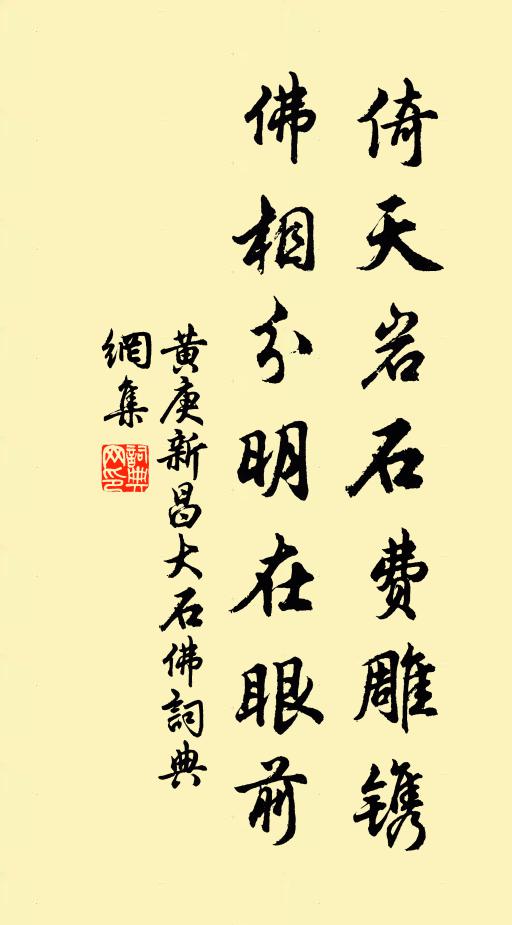 倚天岩石费雕镌
佛相分明在眼前
黄庚新昌大石佛詞典
網集
詞典
网印